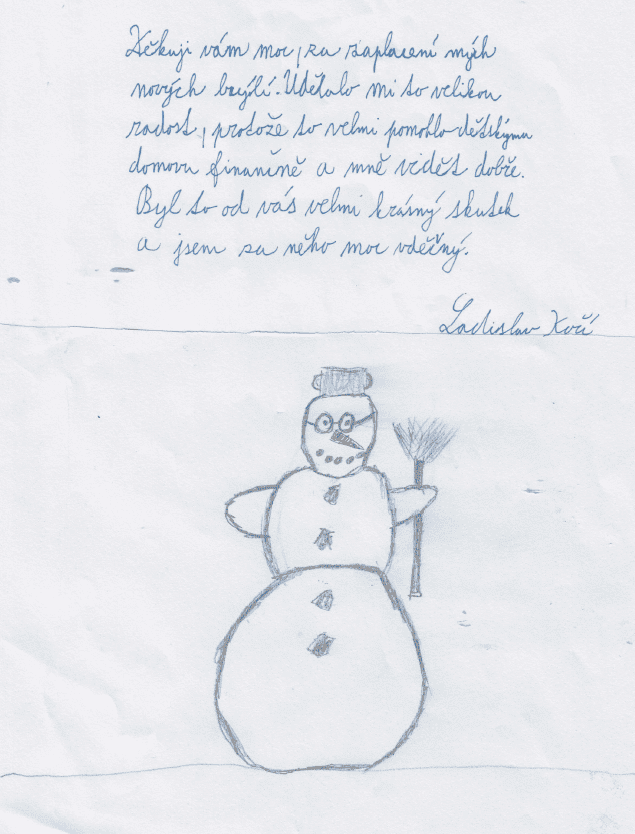 Děkuji vám moc, za zaplacení mých
nových brýlí. Udělalo mi to velikou
radost, protože to velmi pomohlo dětskýmu
domovu finančně a mně vidět dobře.
Byl to od vás velmi krásný skutek
a jsem za něho moc vděčný.
Ladislav Koří